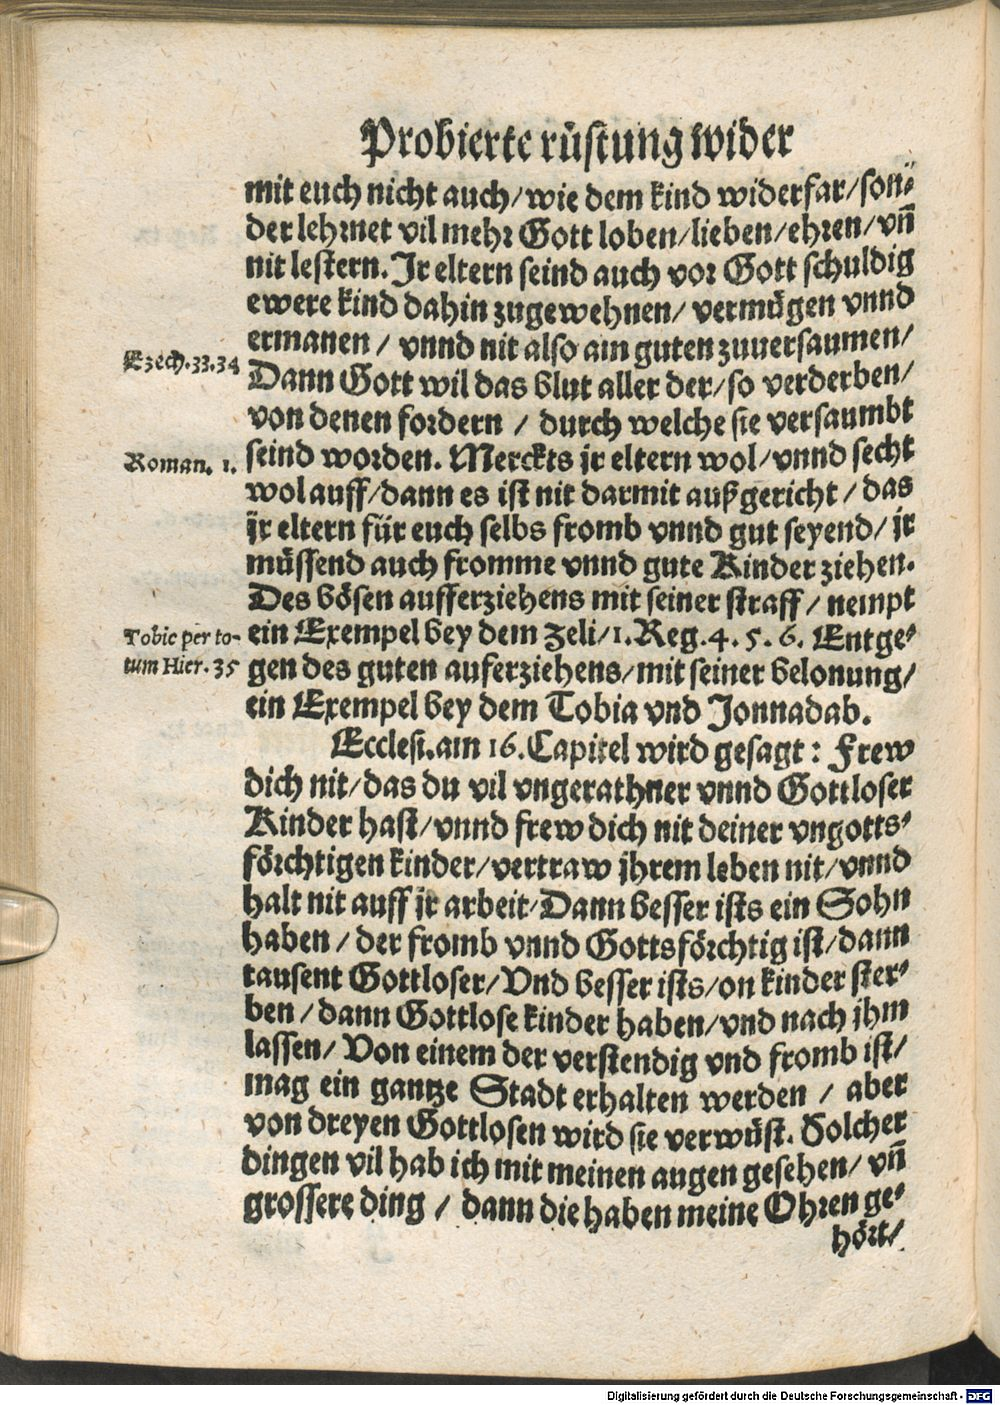 Probierte rüstung wider
mit euch nicht auch/wie dem kind widerfar/son⸗
der lehrnet vil mehr Gott loben/lieben/ehren/vn̄
nit lestern. Jr eltern seind auch vor Gott schuldig
ewere kind dahin zugewehnen/ vermügen vnnd
ermanen / vnnd nit also am guten zuuersaumen/
Ezech.33.34
Dann Gott wil das blut aller der/so verderben/
von denen fordern / durch welche sie versaumbt
Roman. 1.
seind worden. Merckts jr eltern wol/vnnd secht
wol auff/dann es ist nit darmit außgericht / das
jr eltern für euch selbs fromb vnnd gut seyend/ jr
müssend auch fromme vnnd gute Kinder ziehen.
Des bösen aufferziehens mit seiner straff / nempt
Tobie per to-
tum Hier. 35
ein Exempel bey dem Zeli/1.Reg.4.5.6. Entge⸗
gen des guten auferziehens/mit seiner belonung/
ein Exempel bey dem Tobia vnd Jonnadab.
Ecclesi.am 16.Capitel wird gesagt: Frew
dich nit/das du vil vngerathner vnnd Gottloser
Kinder hast/vnnd frew dich nit deiner vngotts⸗
förchtigen kinder/vertraw jhrem leben nit/vnnd
halt nit auff jr arbeit/Dann besser ists ein Sohn
haben / der fromb vnnd Gottsförchtig ist/dann
tausent Gottloser/Vnd besser ists/on kinder ster⸗
ben / dann Gottlose kinder haben/vnd nach jhm
lassen/ Von einem der verstendig vnd fromb ist/
mag ein gantze Stadt erhalten werden / aber
von dreyen Gottlosen wird sie verwüst. Solcher
dingen vil hab ich mit meinen augen gesehen/ vn̄
grossere ding / dann die haben meine Ohren ge⸗
hört/
Digitalisierung gefördert durch die Deutsche Forschungsgemeinschaft - DFG